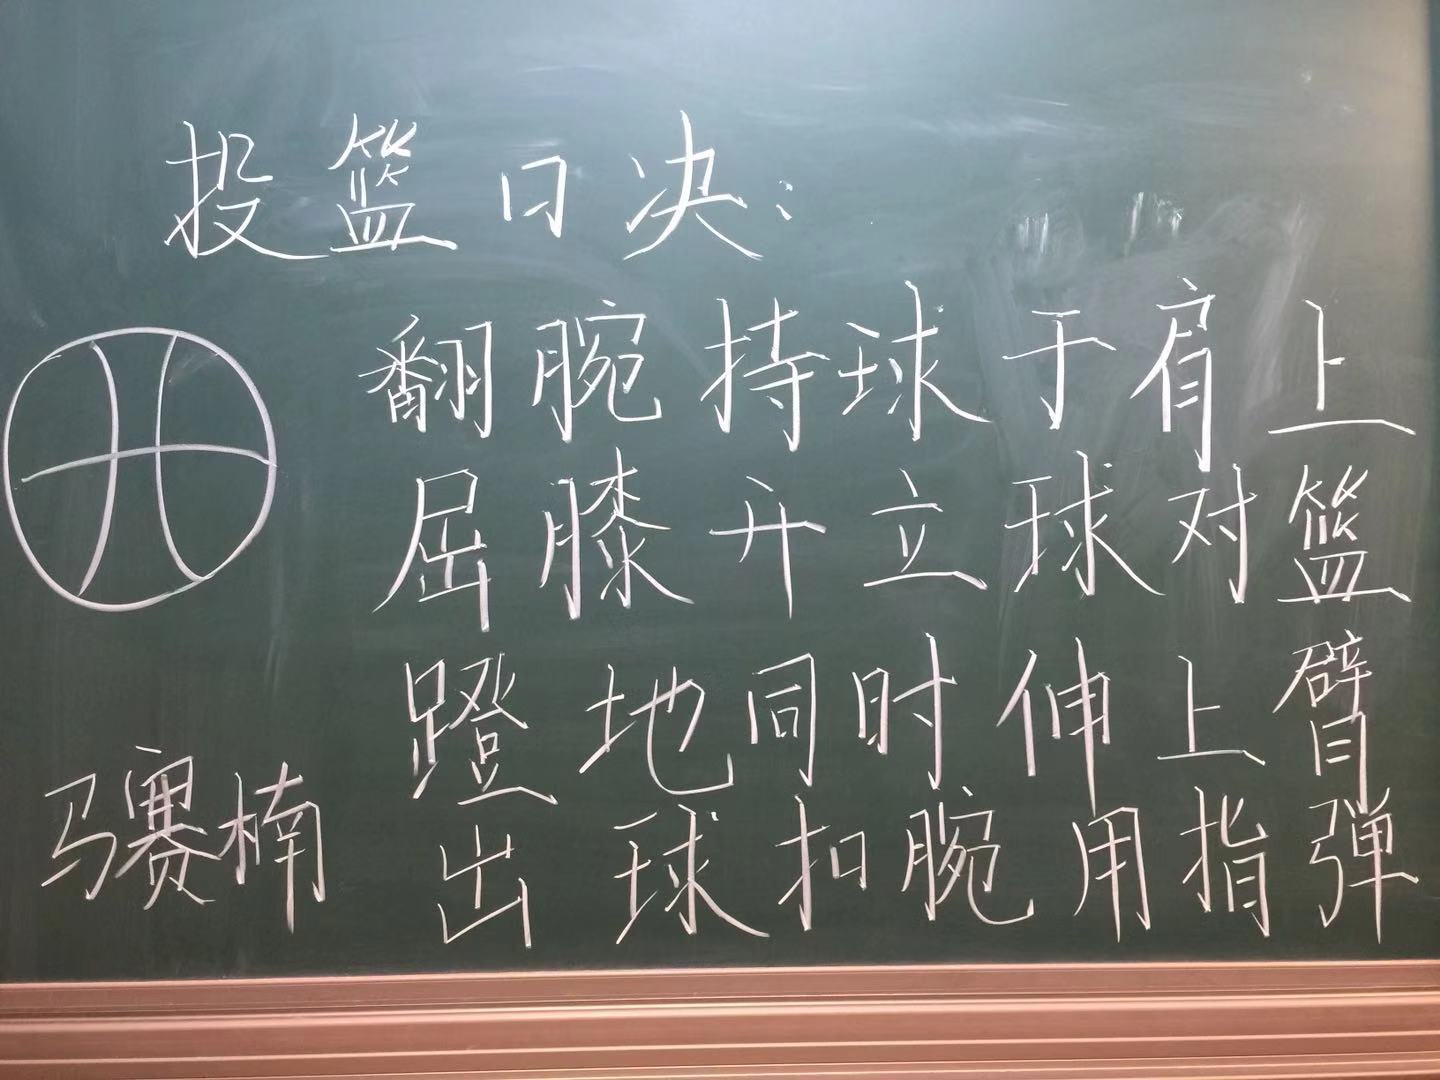 投篮口决:
翻腕持球于肩上
屈膝开立球对篮
蹬地同时伸上臂
出球扣腕用指弹
马赛楠